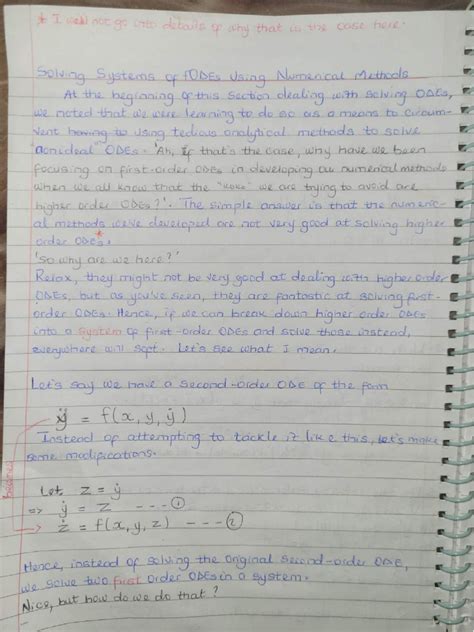 * I will not go into details of why that is the case here.
Solving Systems of fODEs Using Numerical Methods
At the beginning of this section dealing with solving ODEs,
we noted that we were learning to do so as a means to circum-
vent having to using tedious analytical methods to solve
"nonideal" ODEs. 'Ah, if that's the case, why have we been
focusing on first-order ODEs in developing our numerical methods
when we all know that the "" we are trying to avoid are
higher order ODEs?'. The simple answer is that the numeric-
al methods we've developed are not very good at solving higher
order ODEs*.
'So why are we here?'
Relax, they might not be very good at dealing with higher order
ODEs, but as you've seen, they are fantastic at solving first-
order ODEs. Hence, if we can break down higher order ODEs
into a system of first-order ODEs and solve those instead,
everywhere will sqft. Let's see what I mean.
Let's say we have a second-order ODE of the form
ÿ = f(x, y, ẏ)
Instead of attempting to tackle it like this, let's make
some modifications.
Let z = ẏ
=> ẏ = z --- ①
ż = f(x, y, z) --- ②
becomes
Hence, instead of solving the original second-order ODE,
we solve two first order ODEs in a system.
Nice, but how do we do that?